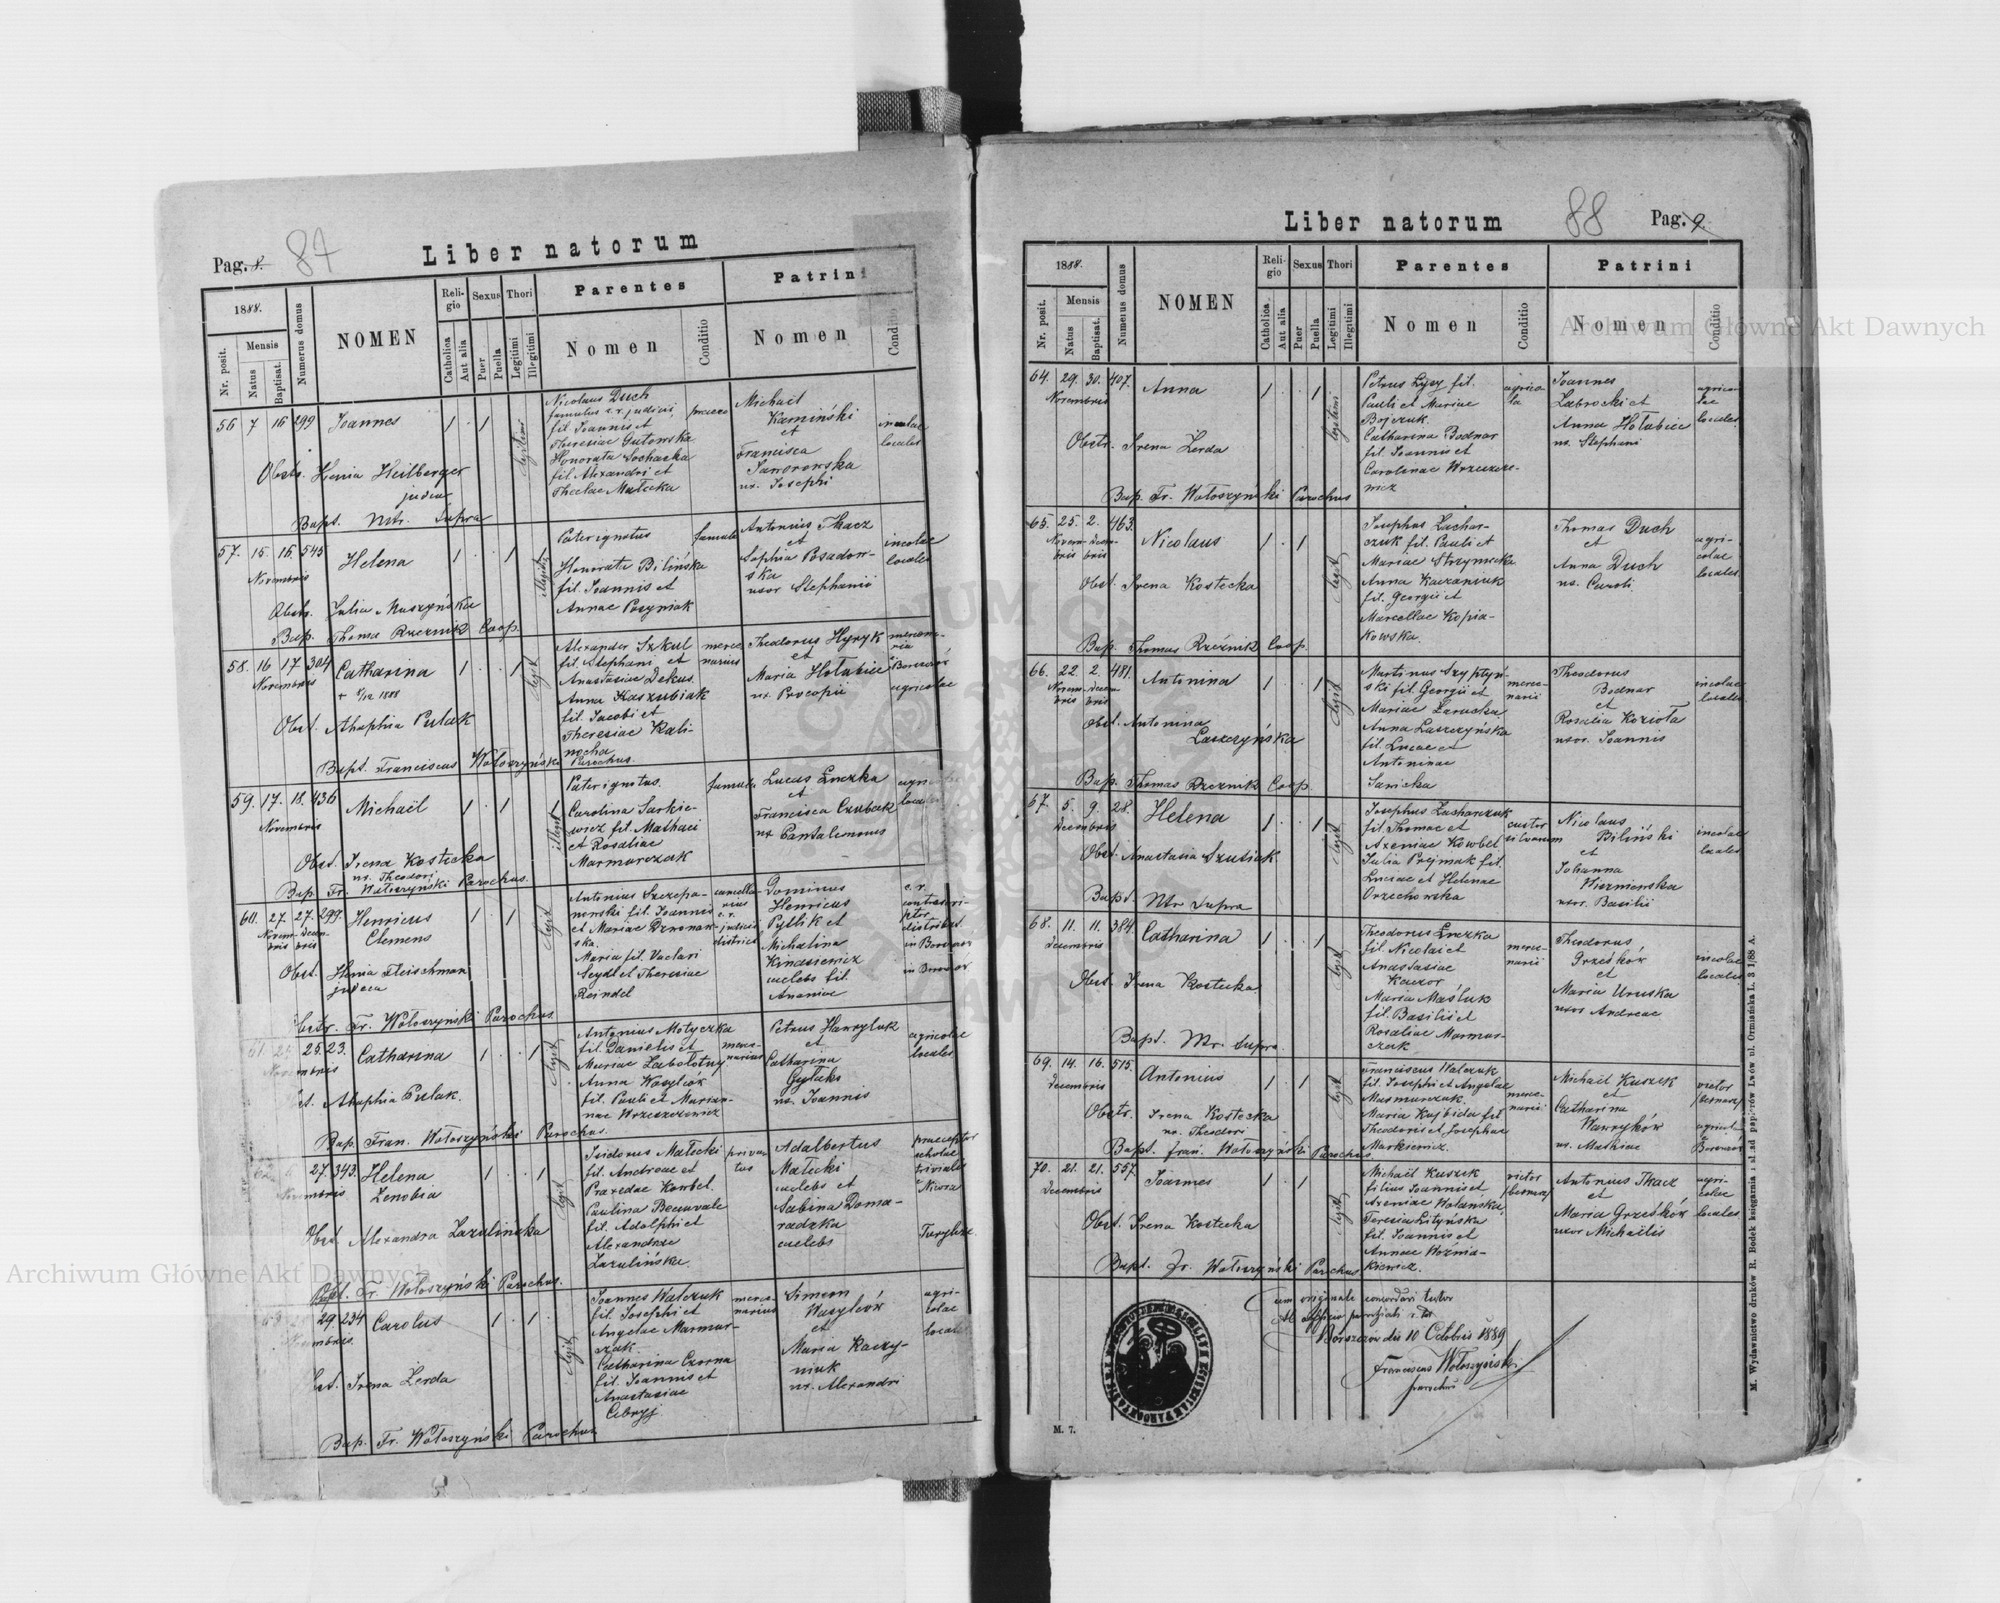 Pag. 8. 87
Liber natorum
1888.
Nr. posit.
Mensis
Natus
Baptisat.
Numerus domus
NOMEN
Religio
Catholica
Aut alia
Sexus
Puer
Puella
Thori
Legitimi
Illegitimi
Parentes
Nomen
Conditio
Patrini
Nomen
Conditio
56 7 16 299 Joannes 1 . 1
Obstr. Henia Heilberger
judea
Bapt. Ntr. Supra
Nicolaus Duch
famulus c. r. judicii,
fil. Joannis et
Theresiae Gutowska
Honorata Sochacka
fil. Alexandri et
Theclae Małecka
praeco
Michaël
Kamiński
et
Francisca
Jaworowska
ux. Josephi
incolae
locales
57. 15. 16. 545 Helena 1 . . 1
Novembris
Obstr. Julia Muszyńska
Bap. Thoma Rzeznik Coop.
Pater ignotus
Honorata Bilińska
fil. Joannis et
Annae Pozyniak
famula
Antonius Tkacz
et
Sophia Posadow-
ska
uxor Stephanii
incolae
locales
58. 16 17. 304 Catharina 1 . . 1
Novembris
Obst. Ahaphia Pulak
Bapt. Franciscus Wołoszyński Parochus.
Alexander Szkul
fil. Stephani et
Anastasiae Dekus.
Anna Kaszubiak
fil. Jacobi et
Theresiae Kali-
nocha
merce
narius
Theodorus Hyryk
et
Maria Hołubice
ux. Procopii
Borszczów
agricolae
59. 17. 18. 436 Michaël 1 . 1
Novembris
Obst. Irena Kostecka
ux. Theodori
Bap. Fr. Wołoszyński Parochus.
Pater ignotus.
Carolina Sarkie-
wicz fil. Mathaei
et Rosaliae
Marmurczak
famula
Lucas Łuczka
et
Francisca Czubak
ux Pantalemonis
60. 27. 27. 299. Henricus 1 . 1
Clemens
Obst. Henia Fleischman
judeca
Fr. Wołoszyński Parochus.
Antonius Szczepa-
nowski fil. Joannis
et Mariae Dzronak-
ska.
Maria fil. Vaclavi
Seydl et Theresiae
Reindel
Dominus
Henricus
Pytlik et
Michalina
Kinasiewicz
caelebs fil.
Ananiae
c. r.
in Borszczów
25. 23. Catharina 1 . . 1
Ahaphia Pulak.
Bap. Fran. Wołoszyński Parochus.
Antonius Motyczka
fil. Danielis et
Mariae Zabołotny
Anna Wasylców
fil. Pauli et Marian-
nae Wrzeszczewicz
merce-
narius
Petrus Hawryluk
et
Catharina
ux. Joannis
agricolae
locales
27. 343. Helena 1 . . 1
Zenobia
Obst. Alexandra Lazulinska
Bapt. Fr. Wołoszyński Parochus.
Isidorus Małecki
fil. Andreae et
Praxedae Kowbel.
Paulina Becuvale
fil. Adolphi et
Alexandrae
Lazulińska.
priva-
tus
Adalbertus
Małecki
caelebs et
Sabina Doma-
radzka
caelebs
praeceptor
scholae
trivialis
Niwra
63 29. 234 Carolus 1 . 1
Obst. Irena Zerda
Bap. Fr. Wołoszyński Parochus
Joannes Walczuk
fil. Josephi et
Angelae Marmur-
czak
Catharina Czorna
fil. Joannis et
Anastasiae
Cebryj.
merce-
narius
Simeon
Wasylców
et
Maria Kaczy-
niuk
ux. Alexandri
agri-
colae
locales
Liber natorum
88 Pag. 9.
1888.
Nr. posit.
Mensis
Natus
Baptisat.
Numerus domus
NOMEN
Religio
Catholica.
Aut alia
Sexus
Puer
Puella
Thori
Legitimi
Illegitimi
Parentes
Nomen
Conditio
Patrini
Nomen
Conditio
64. 29. 30. 407. Anna 1 . . 1
Novembris
Obstr. Irena Zerda
Bap. Fr. Wołoszyński Parochus
Petrus Łysy fil.
Pauli et Mariae
Bojczuk.
Catharina Bodnar
fil. Joannis et
Carolinae Wrzeszcze-
wicz
agrico
la
Joannes
Zabrocki et
Anna Hołubice
ux. Stephani
agrico-
lae
locales
65. 25. 2. 463. Nicolaus 1 . 1
Novem- Decem-
bris bris
Obst. Irena Kostecka
Bap. Thomas Rzeźnik Coop.
Josephus Zachar-
czuk fil. Pauli et
Mariae Strzymecka
Anna Kaczaniuk
fil. Georgii et
Marcellae Kopia-
kowska.
Thomas Duch
et
Anna Duch
ux. Caroli
agri-
colae
locales
66. 22. 2. 481. Antonina 1 . . 1
Novem- Decem-
bris bris
Obst. Antonina
Laszczyńska
Bap. Thomas Rzeznik Coop.
Martinus Szyptyń-
ski fil. Georgii et
Mariae Łarucka
Anna Laszczyńska
fil. Lucae et
Antoninae
Sanicka
merce-
narii
Theodorus
Bodnar
et
Rosalia Kozioła
uxor. Joannis
incolae
locales
67. 5. 9. 28. Helena 1 . . 1
Decembris
Obst. Anastasia Szusiak.
Bapt. Ntr Supra
Josephus Zacharczuk
fil. Thomae et
Axeniae Kowbel
Julia Prejmak fil.
Luciae et Helenae
Orzechowska
custor
silvarum
Nicolaus
Biliński
et
Johanna
Wizniewska
uxor. Basilii
incolae
locales
68. 11. 11. 384. Catharina 1 . . 1
Decembris
Obst. Irena Kostecka
Bapt. Ntr. Supra.
Theodorus Łuczka
fil. Nicolai et
Anastasiae
Kaczor
Maria Maśluk
fil. Basilii et
Rosaliae Marmur-
czak
merce-
narii
Theodorus
Grześków
et
Maria Uruska
uxor Andreae
incolae
locales
69. 14. 16. 515. Antonius 1 . 1
Decembris
Obstr. Irena Kostecka
ux. Theodori
Bapt. Fran. Wołoszyński Parochus
Franciscus Walczuk
fil. Josephi et Angelae
Marmurczuk.
Maria Kujbida fil
Theodori et Josephae
Markiewicz.
merce-
narii
Michaël Kuszek
et
Catharina
Hawryków
ux. Mathiae
victor
70. 21. 21. 557 Joannes 1 . 1
Decembris
Obst. Irena Kostecka
Bapt. Fr. Wołoszyński Parochus
Michaël Kuszek
filius Joannis et
Axeniae Wolańska,
Teresia Lityńska
fil. Joannis et
Annae Woźnia-
kiewicz.
victor
Antonius Tkacz
et
Maria Grześków
uxor Michaëlis
agri-
colae
locales
cum originale concordari testor
Ab officio parochiali r. lat
Borszczów die 10 Octobris 1889
Franciscus Wołoszyński
parochus
M. 7.
M. Wydawnictwo druków R. Bodek księgarnia i skład papierów Lwów ul. Ormiańska L. 3 1/88 A.
Archiwum Główne Akt Dawnych
Archiwum Główne Akt Dawnych